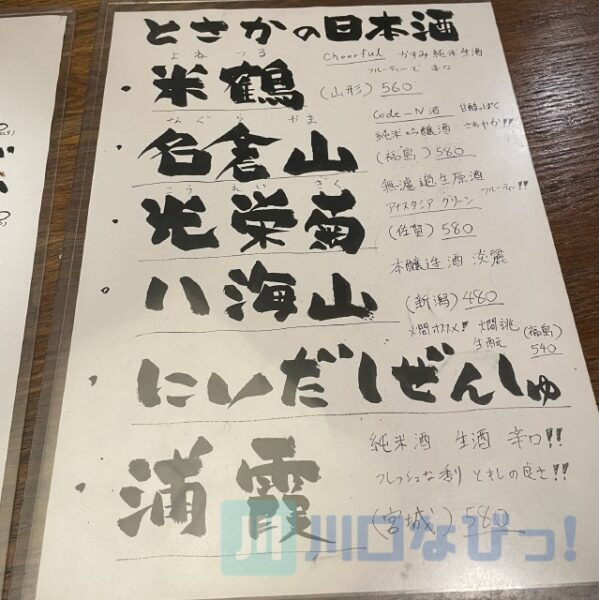 とさかの日本酒
よねつる
米鶴
Cheerful かすみ純米生酒
フルーティーで辛口
(山形) 560
なぐらやま
名倉山
Code-N酒 甘酸っぱく
純米吟醸酒 さわやか!!
(福島) 580
こうえいぎく
光栄菊
無濾過生原酒
アナスタシア グリーン フルーティー!!
(佐賀) 580
八海山
本醸造酒 淡麗
(新潟) 480
にいだしぜんしゅ
燗オススメ! 燗誂
生酛 (福島)
540
浦霞
純米酒 生酒 辛口!!
フレッシュな香り とキレの良さ!!
(宮城) 580
川口なびっ!